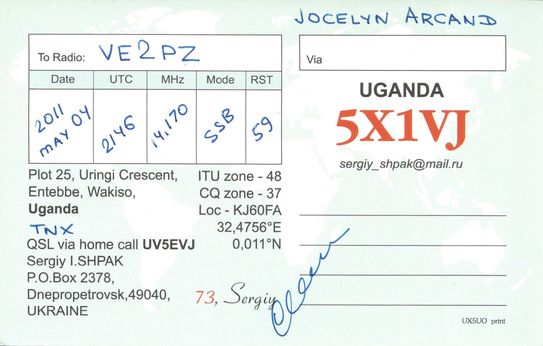 JOCELYN ARCAND
To Radio: VE2PZ
Via
Date UTC MHz Mode RST
2011 MAY 04 2146 14.170 SSB 59
UGANDA
5X1VJ
sergiy_shpak@mail.ru
Plot 25, Uringi Crescent,
Entebbe, Wakiso,
Uganda
TNX
QSL via home call UV5EVJ
Sergiy I.SHPAK
P.O.Box 2378,
Dnepropetrovsk,49040,
UKRAINE
ITU zone - 48
CQ zone - 37
Loc - KJ60FA
32,4756°E
0,011°N
73, Sergiy
UX5UO print